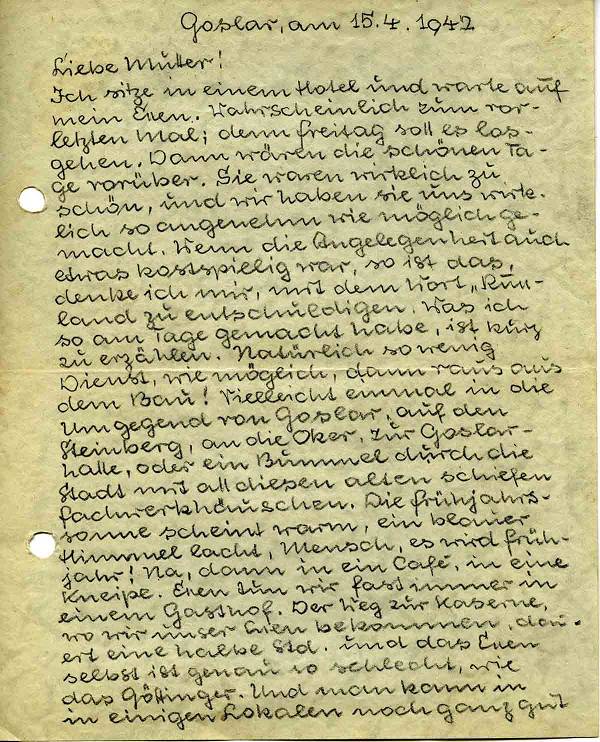 Goslar, am 15.4.1942
Liebe Mutter!
Ich sitze in einem Hotel und warte auf
mein Essen. Wahrscheinlich zum vor-
letzten Mal; denn Freitag soll es los-
gehen. Dann wären die schönen Ta-
ge vorüber. Sie waren wirklich zu
schön, und wir haben sie uns wirk-
lich so angenehm wie möglich ge-
macht. Wenn die Angelegenheit auch
etwas kostspielig war, so ist das,
denke ich mir, mit dem Wort „Ruß-
land zu entschuldigen. Was ich
so am Tage gemacht habe, ist kurz
zu erzählen. Natürlich so wenig
Dienst, wie möglich, dann raus aus
dem Bau! Vielleicht einmal in die
Umgegend von Goslar, auf den
Steinberg, an die Oker, zur Goslar-
halle, oder ein Bummel durch die
Stadt mit all diesen alten schiefen
Fachwerkhäuschen. Die Frühjahrs-
sonne scheint warm, ein blauer
Himmel lacht, Mensch, es wird Früh-
jahr! Na, dann in ein Café, in eine
Kneipe. Essen tun wir fast immer in
einem Gasthof. Der Weg zur Kaserne,
wo wir unser Essen bekommen, dau-
ert eine halbe Std. und das Essen
selbst ist genau so schlecht, wie
das Göttinger. Und man kann in
in einigen Lokalen noch ganz gut